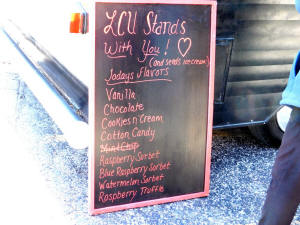 LCU Stands
With You! ♡
(and sends ice cream)
Todays Flavors
Vanilla
Chocolate
Cookies n' Cream
Cotton Candy
Mint Chip
Raspberry Sorbet
Blue Raspberry Sorbet
Watermelon Sorbet
Raspberry Truffle